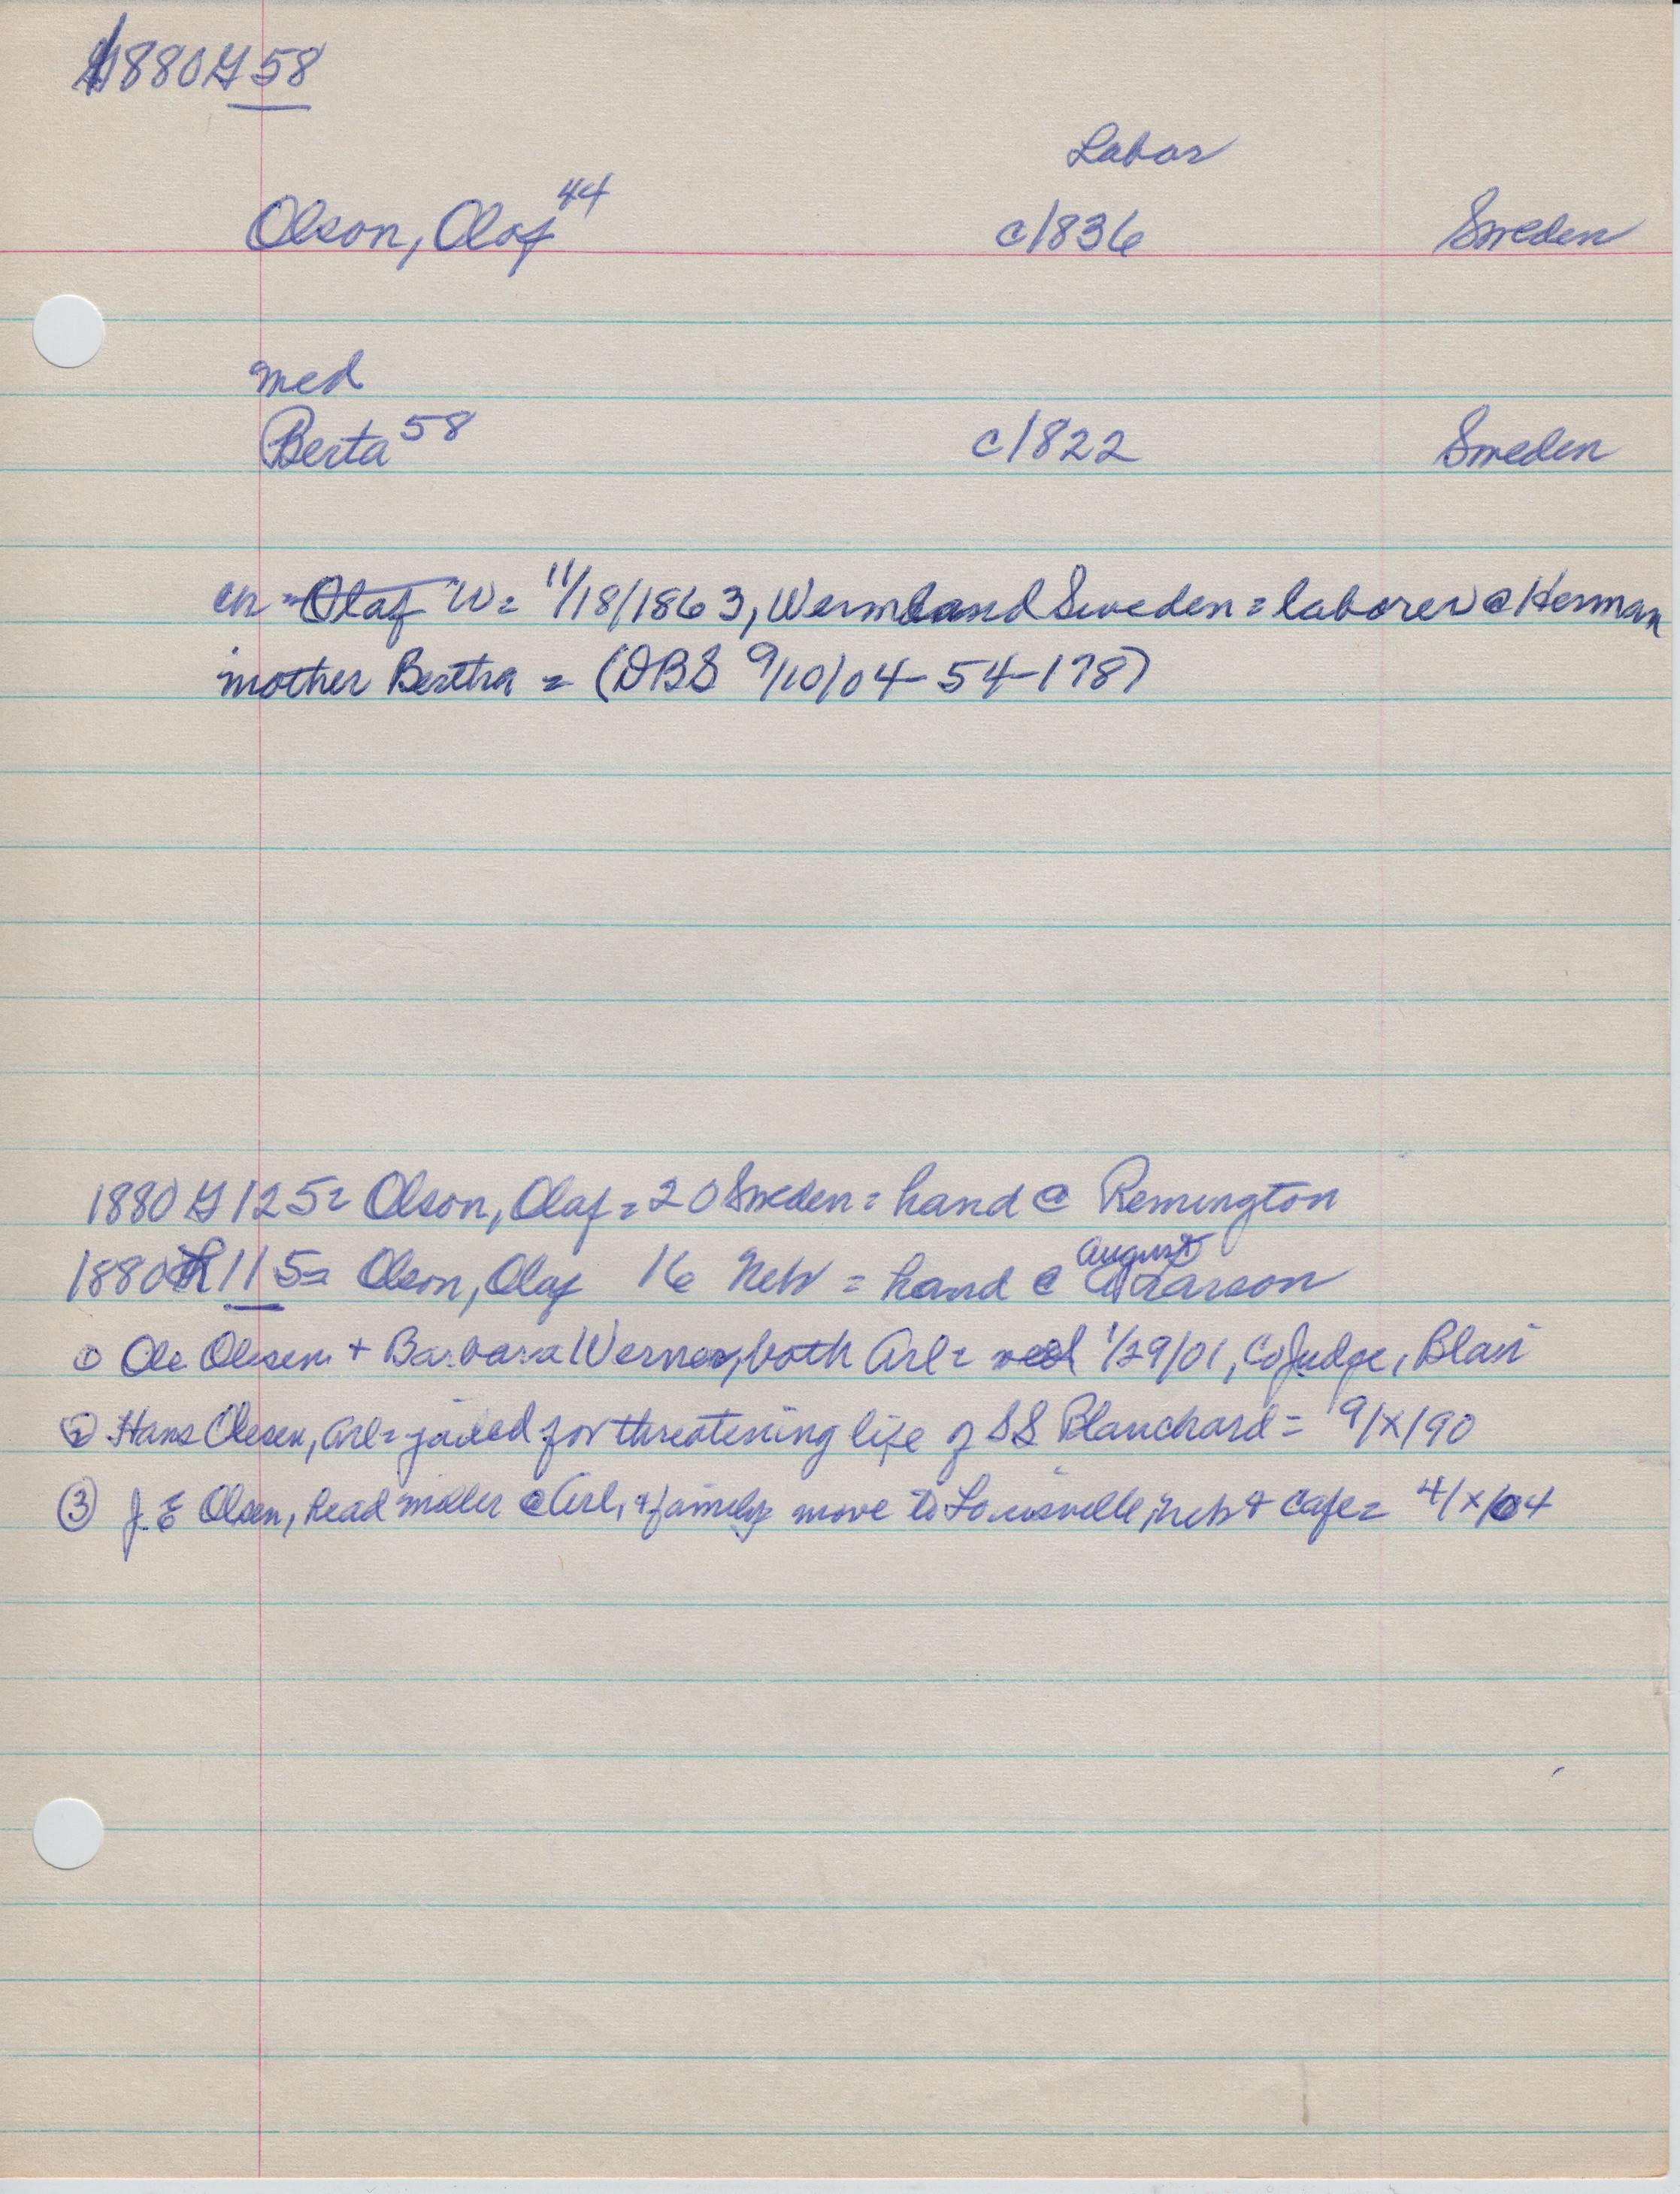 1880 G 58
Labor
Olson, Olaf 44 c1836 Sweden
med
Berta 58 c1822 Sweden
cn = Olaf W = 11/18/1863, Wermland Sweden = laborer @ Herman
mother Bertha = (DBS 9/10/04-54-178)
1880 G 125 = Olson, Olaf = 20 Sweden = hand @ Remington
August
1880 R 115 = Olson, Olaf 16 Neb = hand @ Larson
① Ole Olesen + Barbara Werner, both Arl = wed 1/29/01, Co Judge, Blair
② Hans Olesen, Arl = jailed for threatening life of SS Blanchard = 9/x/90
③ J. E Olsen, head miller @ Arl, & family move to Louisville, Neb & cafe = 4/x/04